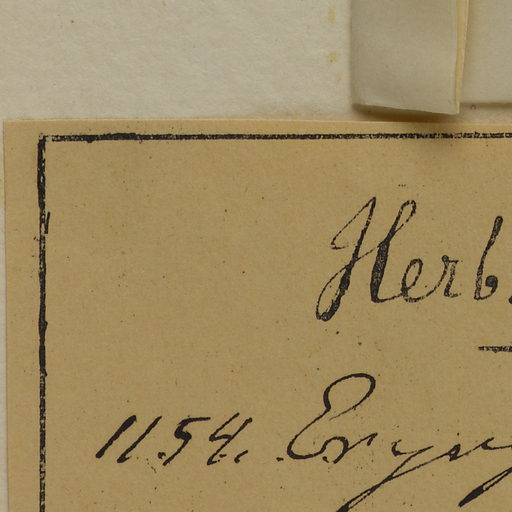 Herb.
1154. Eryng